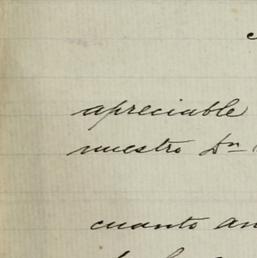 apreciable
nuestro Dn
cuanto an